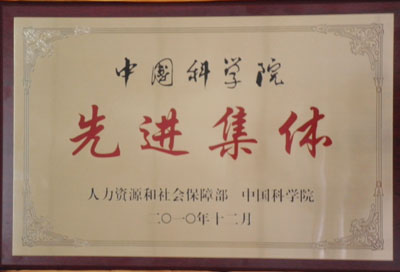 中国科学院
先进集体
人力资源和社会保障部 中国科学院
二〇一〇年十二月